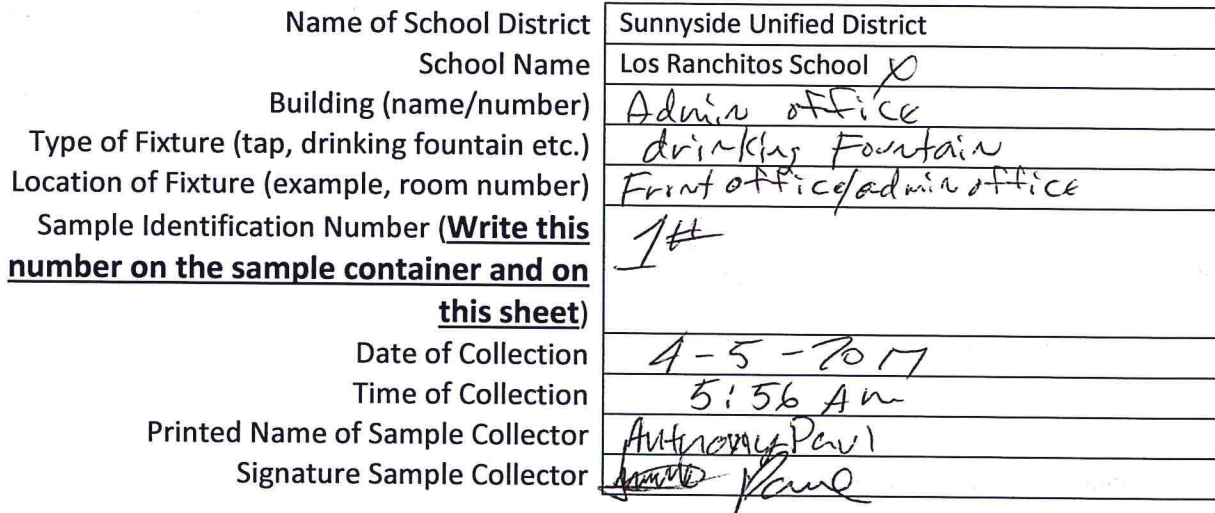 Name of School District Sunnyside Unified District
School Name Los Ranchitos School
Building (name/number) Admin office
Type of Fixture (tap, drinking fountain etc.) drinking Fountain
Location of Fixture (example, room number) Front office/admin office
Sample Identification Number (Write this 1#
number on the sample container and on
this sheet)
Date of Collection 4-5-2017
Time of Collection 5:56 Am
Printed Name of Sample Collector Anthony Paul
Signature Sample Collector